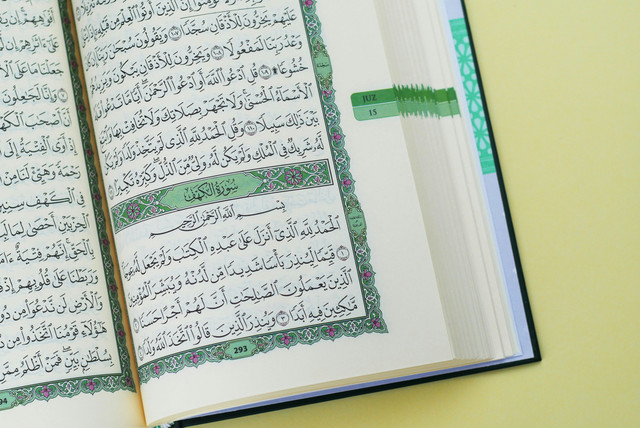 تُؤْمِنُوٓا۟ إِنَّ ٱلَّذِينَ أُوتُوا۟ ٱلْعِلْمَ مِن قَبْلِهِۦٓ
عَلَيْهِمْ يَخِرُّونَ لِلْأَذْقَانِ سُجَّدًا ١٠٧ وَيَقُولُونَ سُبْحَٰنَ رَبِّنَآ إِن كَانَ
وَعْدُ رَبِّنَا لَمَفْعُولًا ١٠٨ وَيَخِرُّونَ لِلْأَذْقَانِ يَبْكُونَ وَيَزِيدُهُمْ
خُشُوعًا ۩ ١٠٩ قُلِ ٱدْعُوا۟ ٱللَّهَ أَوِ ٱدْعُوا۟ ٱلرَّحْمَٰنَ أَيًّا مَّا تَدْعُوا۟ فَلَهُ
ٱلْأَسْمَآءُ ٱلْحُسْنَىٰ وَلَا تَجْهَرْ بِصَلَاتِكَ وَلَا تُخَافِتْ بِهَا وَٱبْتَغِ
بَيْنَ ذَٰلِكَ سَبِيلًا ١١٠ وَقُلِ ٱلْحَمْدُ لِلَّهِ ٱلَّذِى لَمْ يَتَّخِذْ وَلَدًا وَلَمْ يَكُن
لَّهُۥ شَرِيكٌ فِى ٱلْمُلْكِ وَلَمْ يَكُن لَّهُۥ وَلِىٌّ مِّنَ ٱلذُّلِّ وَكَبِّرْهُ تَكْبِيرًۢا ١١١
سُورَةُ ٱلْكَهْفِ
بِسْمِ ٱللَّهِ ٱلرَّحْمَٰنِ ٱلرَّحِيمِ
ٱلْحَمْدُ لِلَّهِ ٱلَّذِىٓ أَنزَلَ عَلَىٰ عَبْدِهِ ٱلْكِتَٰبَ وَلَمْ يَجْعَل لَّهُۥ عِوَجَا ١
قَيِّمًا لِّيُنذِرَ بَأْسًا شَدِيدًا مِّن لَّدُنْهُ وَيُبَشِّرَ ٱلْمُؤْمِنِينَ
ٱلَّذِينَ يَعْمَلُونَ ٱلصَّٰلِحَٰتِ أَنَّ لَهُمْ أَجْرًا حَسَنًا ٢
مَّٰكِثِينَ فِيهِ أَبَدًا ٣ وَيُنذِرَ ٱلَّذِينَ قَالُوا۟ ٱتَّخَذَ ٱللَّهُ وَلَدًا ٤
293
JUZ
15
عَلَىٰٓ ءَاثَٰرِهِمْ إِن
جَعَلْنَا مَا عَلَى
وَإِنَّا لَجَٰعِلُونَ
أَنَّ أَصْحَٰبَ ٱلْكَهْفِ
إِذْ أَوَى ٱلْفِتْيَةُ إِلَى
رَحْمَةً وَهَيِّئْ لَنَا مِنْ
فِى ٱلْكَهْفِ سِنِينَ
ٱلْحِزْبَيْنِ أَحْصَىٰ لِمَا
بِٱلْحَقِّ إِنَّهُمْ فِتْيَةٌ
وَرَبَطْنَا عَلَىٰ قُلُوبِهِمْ إِذْ
وَٱلْأَرْضِ لَن نَّدْعُوَا۟ مِن
هَٰٓؤُلَآءِ قَوْمُنَا ٱتَّخَذُوا۟ مِن
بِسُلْطَٰنٍۭ بَيِّنٍ فَمَنْ أَظْلَمُ مِمَّنِ
94